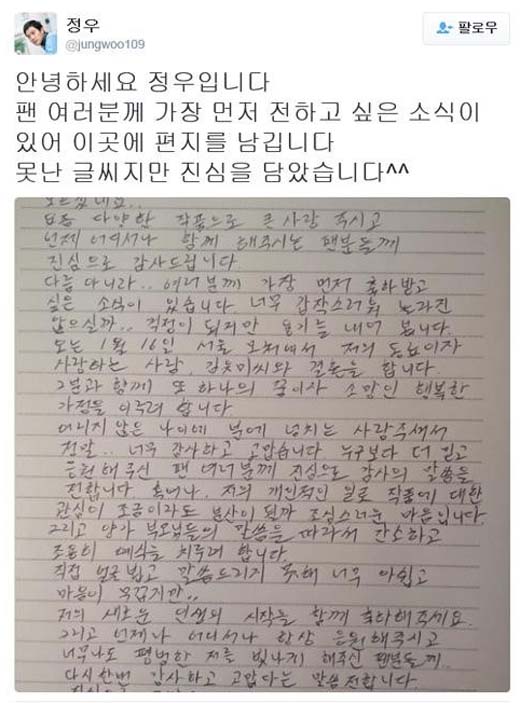 정우
@jungwoo109
팔로우
안녕하세요 정우입니다
팬 여러분께 가장 먼저 전하고 싶은 소식이
있어 이곳에 편지를 남깁니다
못난 글씨지만 진심을 담았습니다^^
요즘 다양한 작품으로 큰 사랑 주시고
언제 어디서나 함께 해주시는 팬분들께
진심으로 감사드립니다.
다름 아니라.. 여러분께 가장 먼저 축하받고
싶은 소식이 있습니다. 너무 갑작스러워 놀라진
않으실까.. 걱정이 되지만 용기를 내어 봅니다.
오는 1월 16일 서울 모처에서 저의 동료이자
사랑하는 사람, 김유미씨와 결혼을 합니다.
그분과 함께 또 하나의 꿈이자 소망인 행복한
가정을 이루려 합니다.
어리지 않은 나이에 분에 넘치는 사랑주셔서
정말.. 너무 감사하고 고맙습니다. 누구보다 더 믿고
응원해 주신 팬 여러분께 진심으로 감사의 말씀을
전합니다 혹여나. 저의 개인적인 일로 작품에 대한
관심이 조금이라도 분산이 될까 조심스러운 마음입니다.
그리고 양가 부모님들의 말씀을 따라서 간소하고
조용히 예식을 치루려 합니다.
직접 얼굴 뵙고 말씀드리지 못해 너무 아쉽고
마음이 무겁지만..
저의 새로운 인생의 시작을 함께 축하해주세요.
그리고 언제나 어디서나 항상 응원해주시고
너무나도 평범한 저를 빛나게 해주신 팬분들께
다시한번 감사하고 고맙다는 말씀 전합니다.